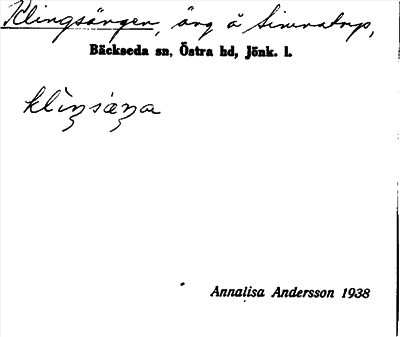 Klingsängen, äng å Simmatorp,
Bäckseda sn, Östra hd, Jönk. l.
Annalisa Andersson 1938